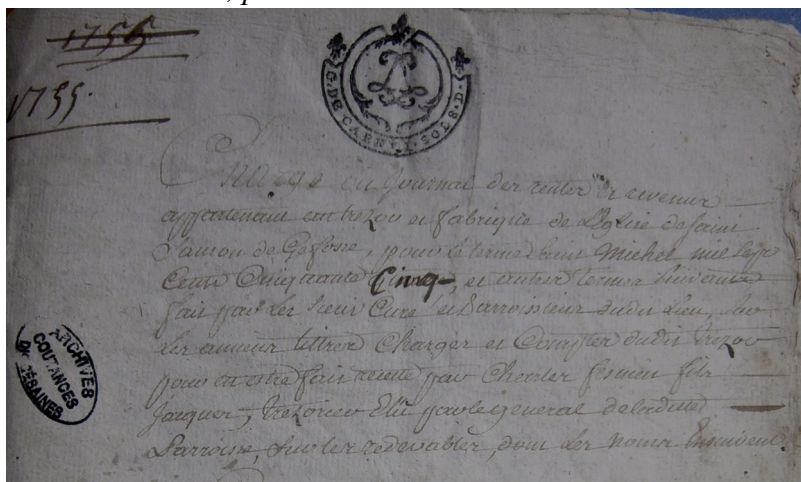 1756
1755.
G. DE CAEN. 1. SOL 8. D.
ou Journal des rentes et revenus
appartenant aux trezor et fabrique de L'eglise de saint
Samson de Gefosse, pour le terme saint Michel mil sept
Cents Cinquante Cinq, et autres termes suivants
fait par Les sieur Curé et Parroissiens dudit Lieu, sur
Les anciens tittres Charges et Comptes dudit trezor
pour en estre fait recette par Charles fils
Jacques, trezorier Elû par le general de laditte
Parroisse, sur les redevables, dont Les noms Ensuivent
ARCHIVES
COUTANCES
DIOCÉSAINES